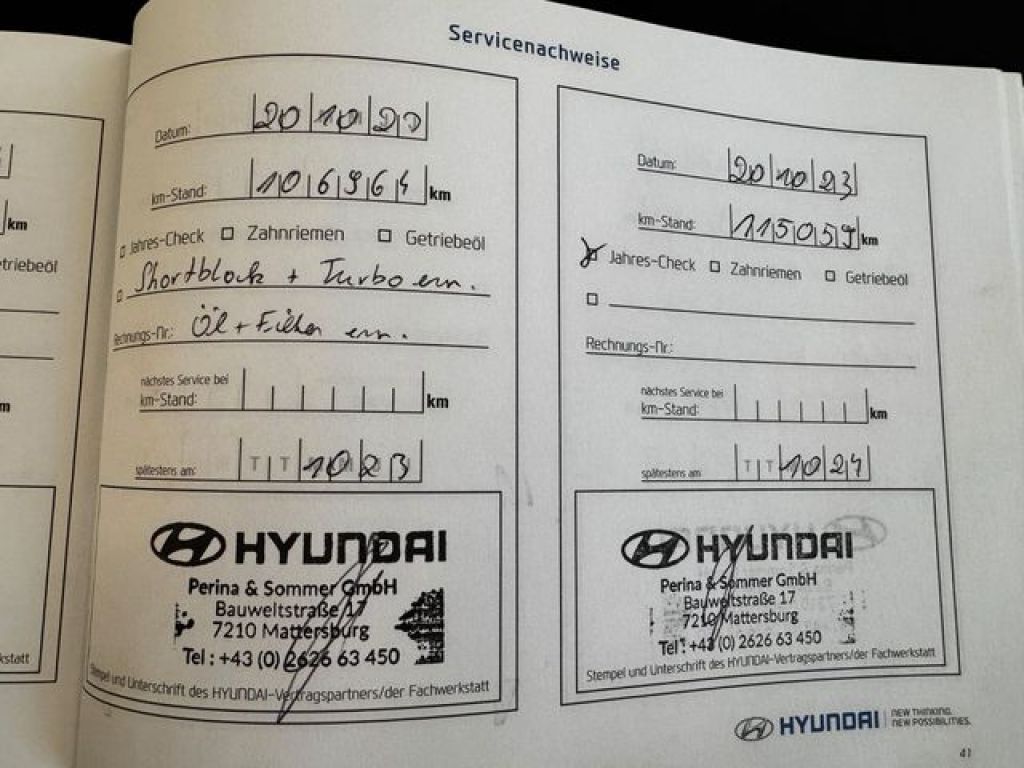 Servicenachweise
km
triebeöl
m
kstatt
Datum: 20 10 22
km-Stand: 106964 km
Jahres-Check Zahnriemen Getriebeöl
Shortblock + Turbo ern.
Rechnungs-Nr.: Öl + Filter ern.
nächstes Service bei
km-Stand: km
spätestens am: T T 10 23
HYUNDAI
Perina & Sommer GmbH
Bauweltstraße 17
7210 Mattersburg
Tel : +43 (0) 2626 63 450
Stempel und Unterschrift des HYUNDAI-Vertragspartners/der Fachwerkstatt
Datum: 20 10 23
km-Stand: 115059 km
Jahres-Check Zahnriemen Getriebeöl
Rechnungs-Nr.:
nächstes Service bei
km-Stand: km
spätestens am: T T 10 24
HYUNDAI
Perina & Sommer GmbH
Bauweltstraße 17
7210 Mattersburg
Tel : +43 (0) 2626 63 450
Stempel und Unterschrift des HYUNDAI-Vertragspartners/der Fachwerkstatt
HYUNDAI NEW THINKING.
NEW POSSIBILITIES.
41